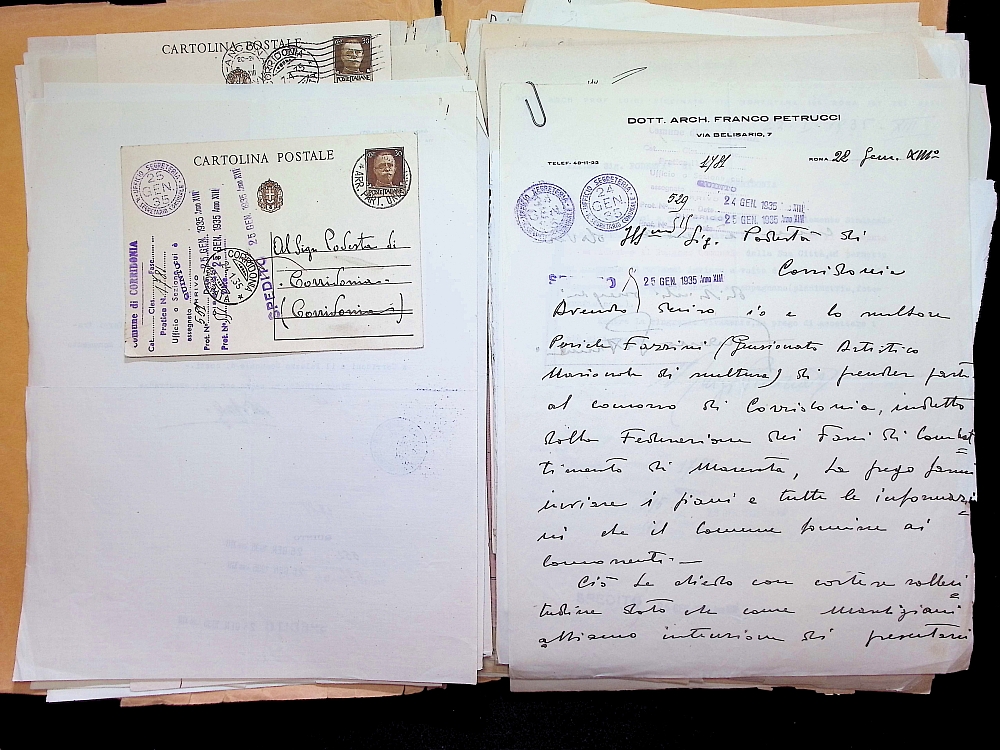 CARTOLINA POSTALE
CORRIDONIA
POSTE ITALIANE
CARTOLINA POSTALE
UFFICIO SEGRETERIA
25
GEN.
35
30
POSTE ITALIANE
Comune di CORRIDONIA
Cat. Clas. Fasc.
Pratica N. 1781
Ufficio o Sezione cui è
assegnato
ARRIVO
25 GEN. 1935 Anno XIII
SPEDITO
25 GEN. 1935 Anno XIII
CORRIDONIA
Al Sigr Podestà di
Corridonia
(Corridonia)
DOTT. ARCH. FRANCO PETRUCCI
VIA BELISARIO, 7
TELEF. 48-11-33
1781
ROMA 22 Gen. XIIIº
UFFICIO SEGRETERIA
24
GEN.
35
529
24 GEN. 1935 Anno XIII
25 GEN. 1935 Anno XIII
Ill Sig. Podestà di
Corridonia
25 GEN. 1935 Anno XIII
Avendo deciso io e lo scultore
Pericle Fazzini (Pensionato Artistico
Nazionale di scultura) di prender parte
al concorso di Corridonia, indetto
dalla Federazione dei Fasci di Combat
timento di Macerata, La prego farmi
inviare i piani e tutte le informazi
ni che il Comune fornisce ai
concorrenti.—
Ciò Le chiedo con cortese solleci
tudine dato che come Marchigiani
abbiamo intenzione di presentarci